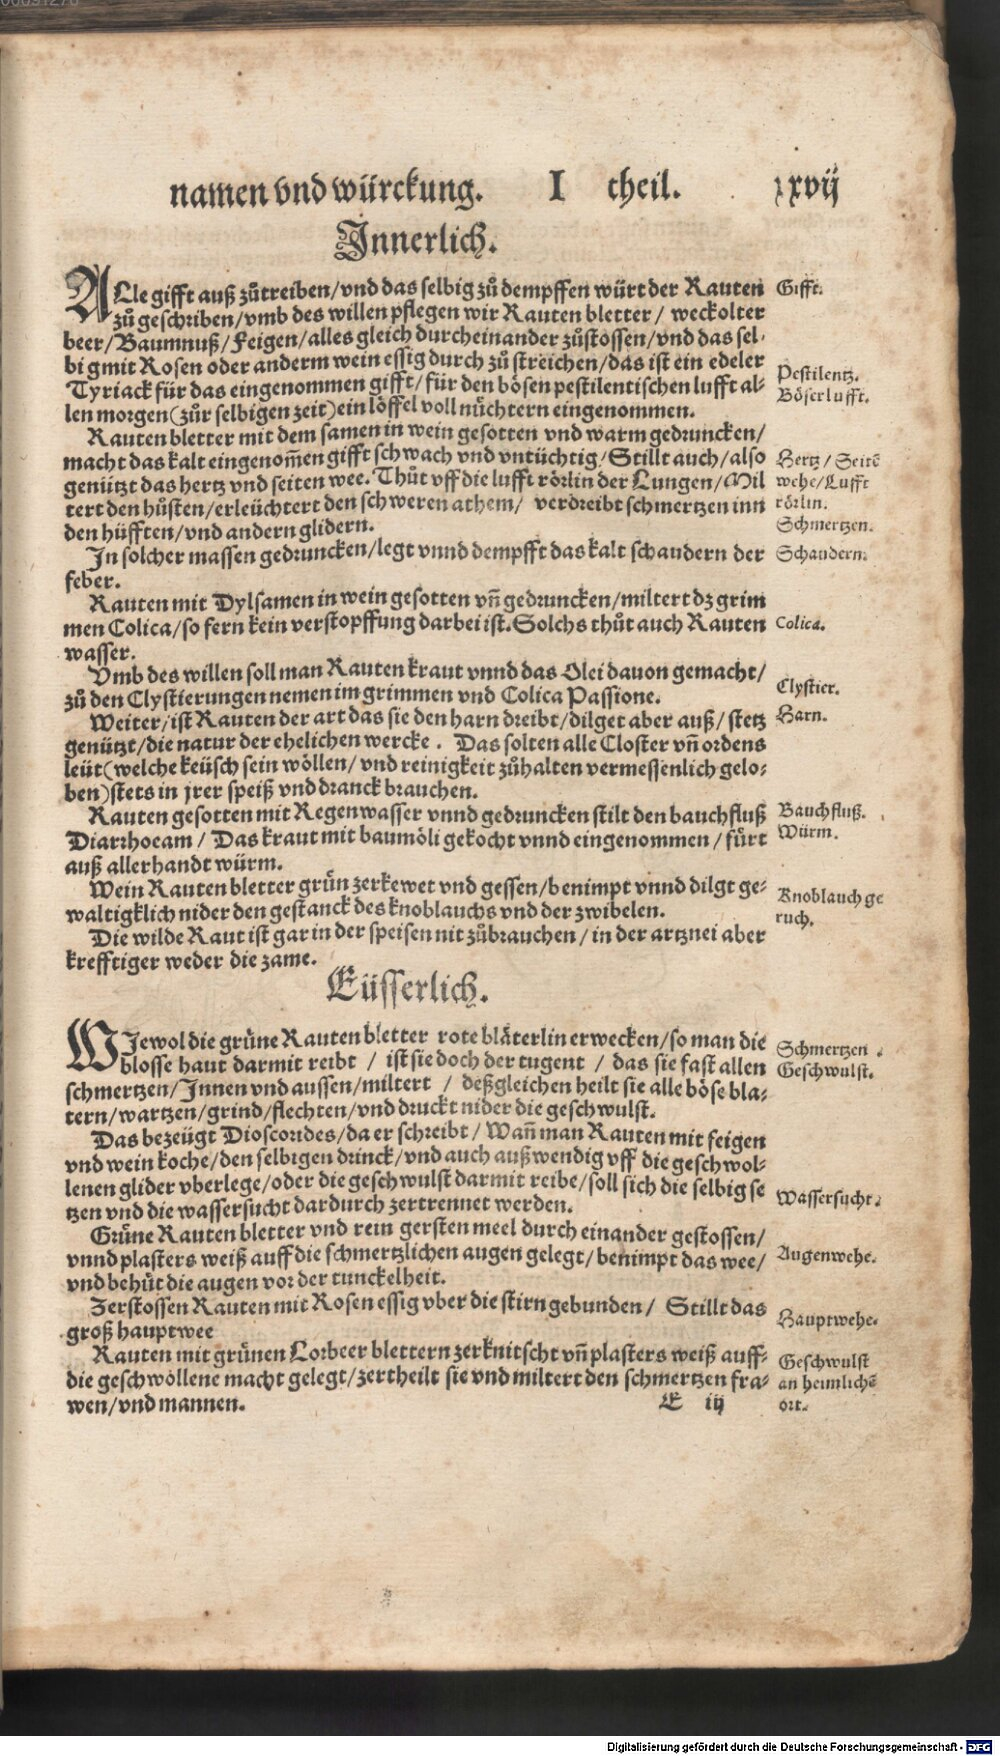 namen vnd würckung. I theil. xxvij
Innerlich.
ALle gifft auß zůtreiben/vnd das selbig zů dempffen würt der Rauten Gifft.
zů geschriben/vmb des willen pflegen wir Rauten bletter/ weckolter
beer/Baumnuß/Feigen/alles gleich durcheinander zůstossen/vnd das sel-
big mit Rosen oder anderm wein essig durch zů streichen/das ist ein edeler
Pestilentz.
Tyriack für das eingenommen gifft/für den bösen pestilentischen lufft al-
Böser lufft.
len morgen (zůr selbigen zeit) ein löffel voll nůchtern eingenommen.
Rauten bletter mit dem samen in wein gesotten vnd warm gedruncken/
macht das kalt eingenom̄en gifft schwach vnd vntüchtig/Stillt auch/also Hertz/Seitē
genützt das hertz vnd seiten wee. Thůt vff die lufft rörlin der Lungen/Mil wehe/Lufft
tert den hůsten/erleüchtert den schweren athem/ verdreibt schmertzen inn rörlin.
den hüfften/vnd andern glidern. Schmertzen.
In solcher massen gedruncken/legt vnnd dempfft das kalt schaudern der Schaudern.
feber.
Rauten mit Dylsamen in wein gesotten vn̄ gedruncken/miltert dz grim
men Colica/so fern kein verstopffung darbei ist. Solchs thůt auch Rauten Colica.
wasser.
Vmb des willen soll man Rauten kraut vnnd das Olei dauon gemacht/
zů den Clystierungen nemen im grimmen vnd Colica Passione. Clystier.
Weiter/ist Rauten der art das sie den harn dreibt/dilget aber auß/stetz Harn.
genützt/die natur der ehelichen wercke. Das solten alle Closter vn̄ ordens
leüt (welche keüsch sein wöllen/vnd reinigkeit zůhalten vermessenlich gelo-
ben) stets in jrer speiß vnd dranck brauchen.
Rauten gesotten mit Regenwasser vnnd gedruncken stilt den bauchfluß Bauchfluß.
Diarrhoeam/ Das kraut mit baumöli gekocht vnnd eingenommen/fürt Würm.
auß allerhandt würm.
Wein Rauten bletter grün zerkewet vnd gessen/benimpt vnnd dilgt ge- Knoblauch ge
waltigklich nider den gestanck des knoblauchs vnd der zwibelen. ruch.
Die wilde Raut ist gar in der speisen nit zůbrauchen/in der artznei aber
krefftiger weder die zame.
Eüsserlich.
WJewol die grüne Rauten bletter rote bläterlin erwecken/so man die Schmertzen.
blosse haut darmit reibt/ ist sie doch der tugent/ das sie fast allen Geschwulst.
schmertzen/Jnnen vnd aussen/miltert/ deßgleichen heilt sie alle böse bla-
tern/wartzen/grind/flechten/vnd druckt nider die geschwulst.
Das bezeügt Dioscorides/da er schreibt/Wan̄ man Rauten mit feigen
vnd wein koche/den selbigen drinck/vnd auch außwendig vff die geschwol-
lenen glider vberlege/oder die geschwulst darmit reibe/soll sich die selbig se Wassersucht.
tzen vnd die wassersucht dardurch zertrennet werden.
Grüne Rauten bletter vnd rein gersten meel durch einander gestossen/
vnnd plasters weiß auff die schmertzlichen augen gelegt/benimpt das wee/ Augenwehe.
vnd behüt die augen vor der tunckelheit.
Zerstossen Rauten mit Rosen essig vber die stirn gebunden/ Stillt das Hauptwehe.
groß hauptwee
Rauten mit grünen Lorbeer blettern zerknitscht vn̄ plasters weiß auff- Geschwulst
die geschwollene macht gelegt/zertheilt sie vnd miltert den schmertzen fra- an heimlichē
wen/vnd mannen. E iij ort.
Digitalisierung gefördert durch die Deutsche Forschungsgemeinschaft - DFG